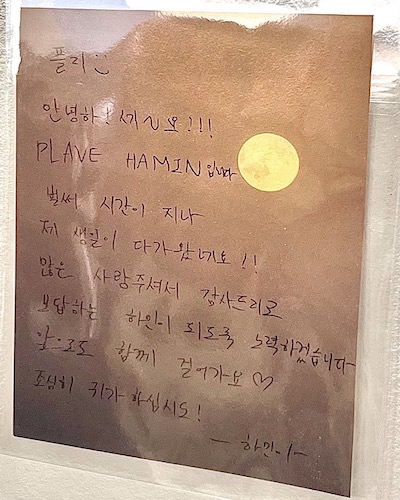 플리
안녕하!세~요!!!
PLAVE HAMIN입니다
벌써 시간이 지나
제 생일이 다가왔네요!!
많은 사랑주셔서 감사드리고
보답하는 하민이 되도록 노력하겠습니다
앞으로도 함께 걸어가요♡
조심히 귀가 하십시오!